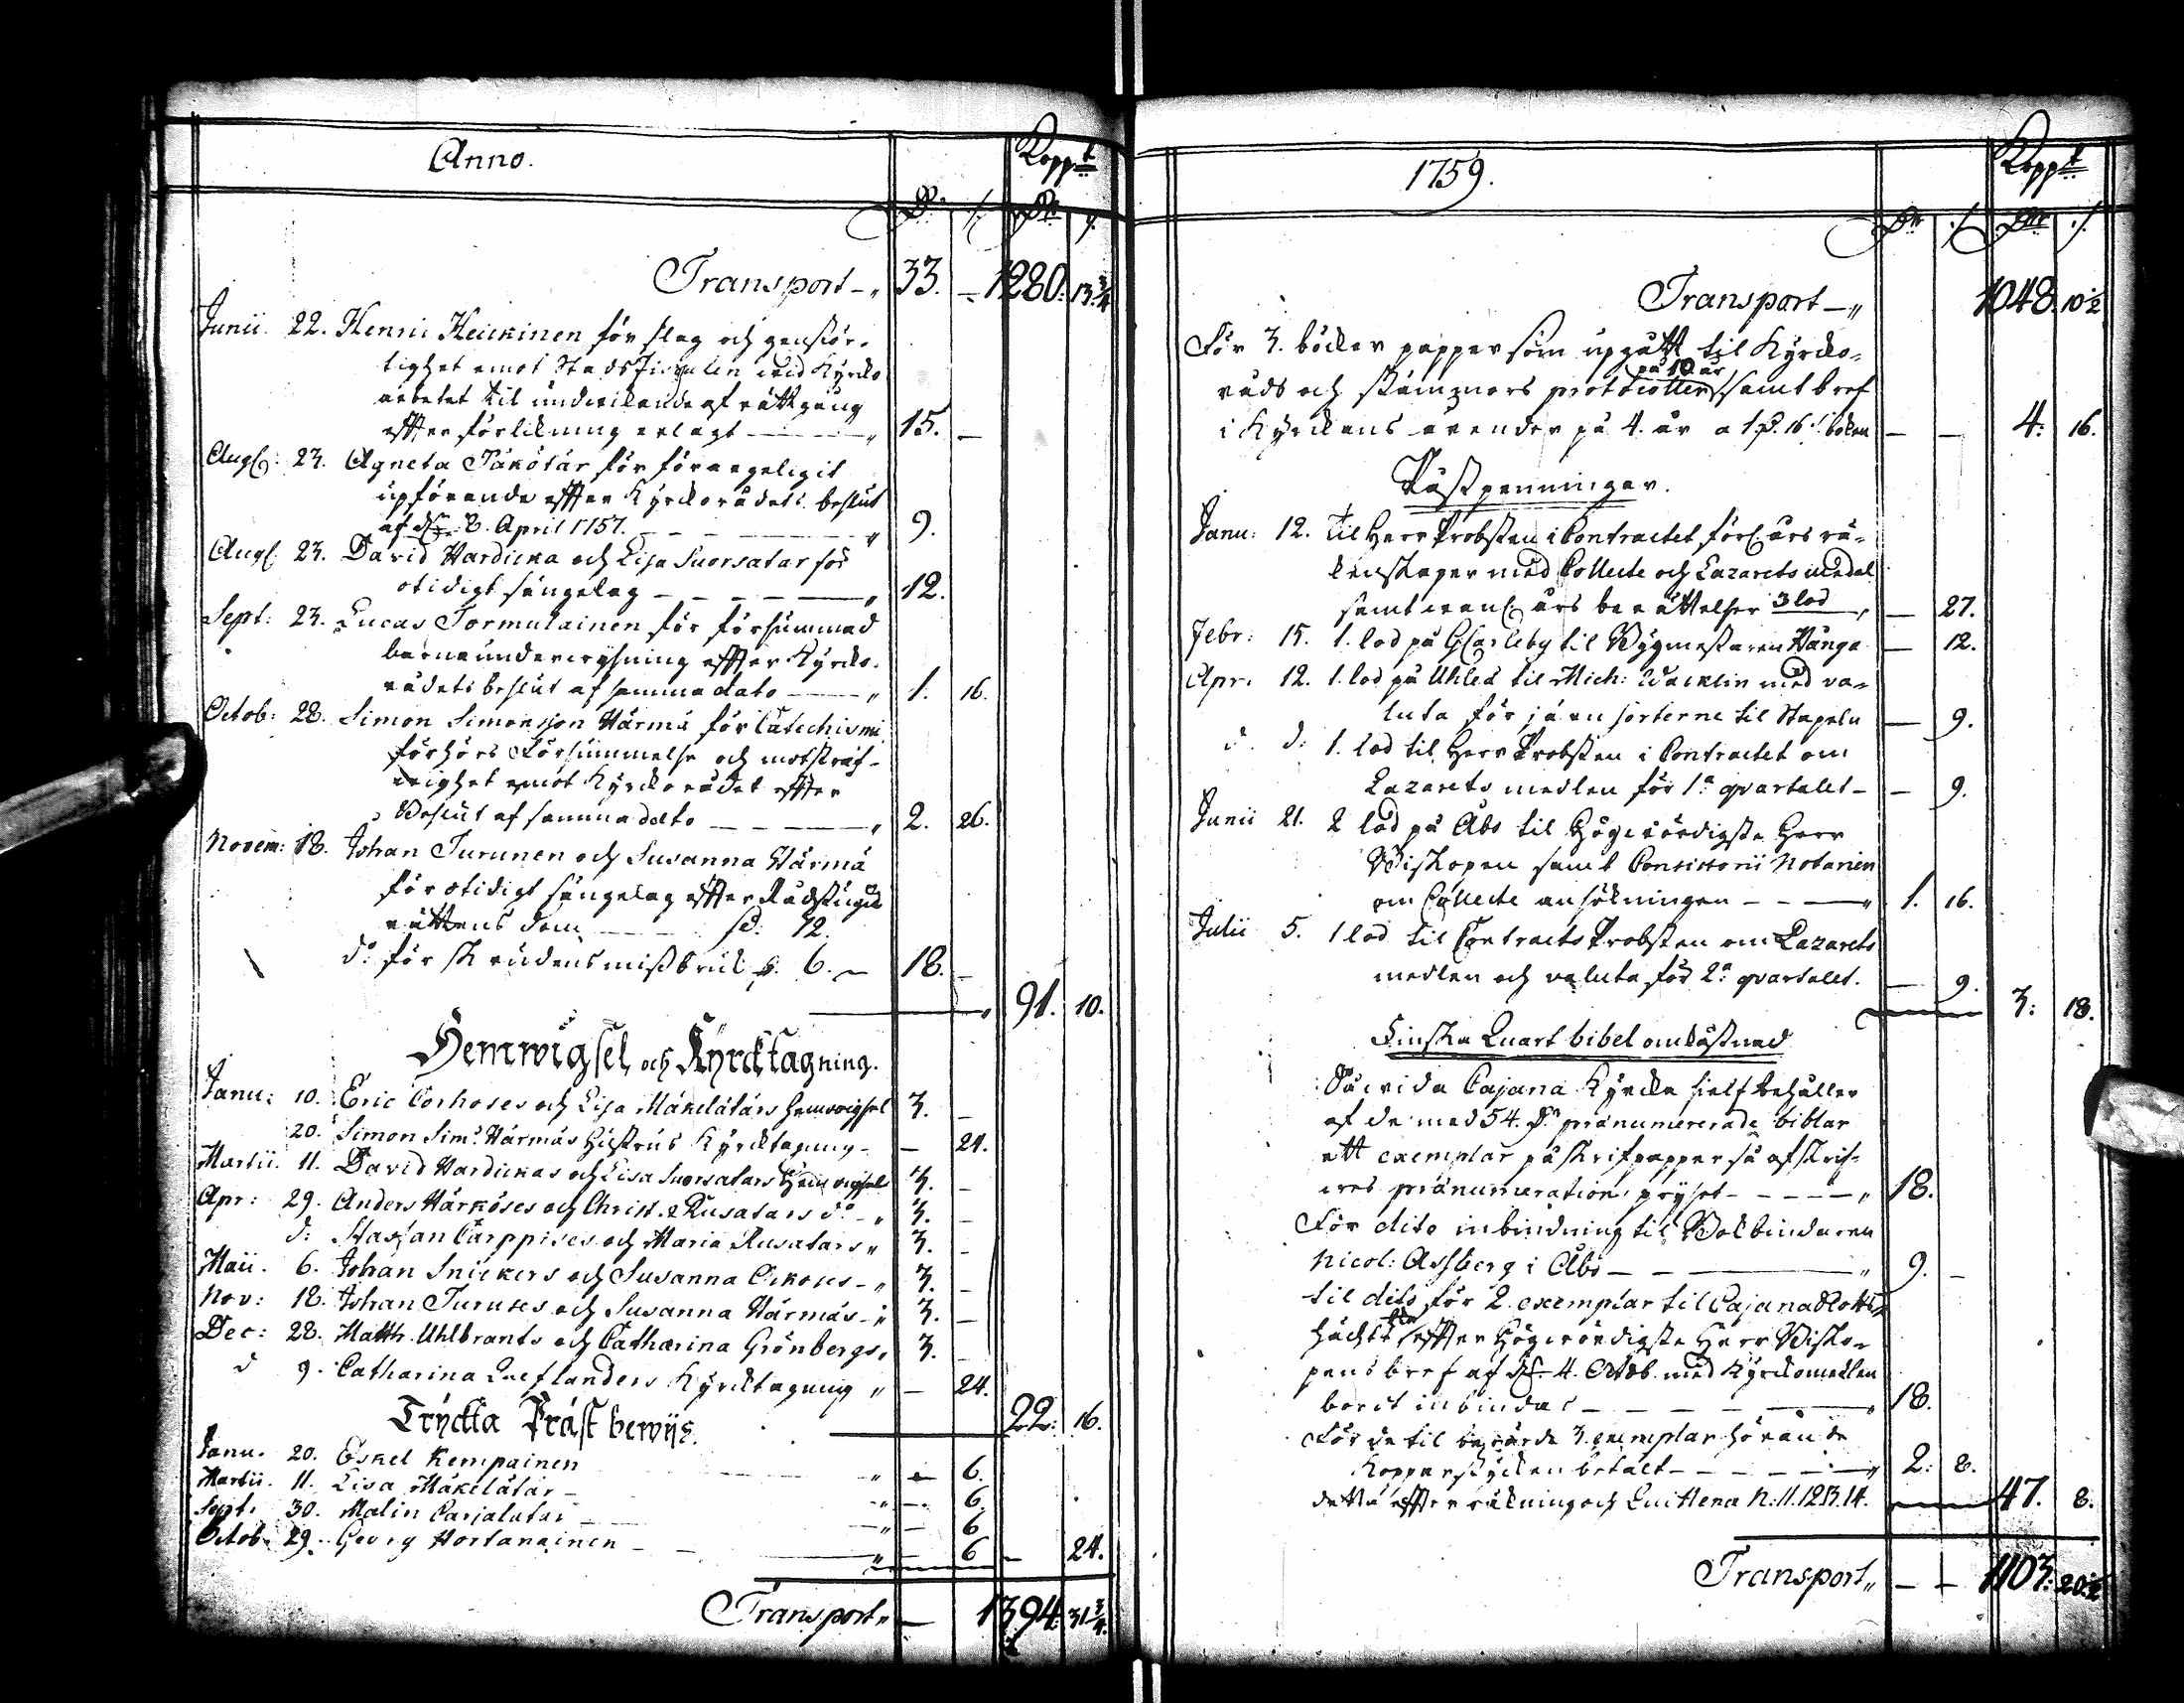 Anno.
Kopp:t
Dr ./. Dlr ./.
Transport — 33. — 1280. 13 3/4
Junii. 22. Henric Heickinen för slag och genstör-
tighet emot Stads Fiscalen wid Kyrko
arbetet til undwikande af rättgång
effter förlikning erlagt — 15. —
Aug: 23. Agneta Täkötär för förargeligit
upförande effter Kyrkorådets beslut
af d. 8. April 1757. — 9.
Aug: 23. David Hardicka och Lisa Suorsatar för
otidigt sängelag — 12.
Sept: 23. Lucas Tormulainen för försummad
barnaunderwysning effter Kyrko-
rådets beslut af samma dato — 1. 16.
Octob: 28. Simon Simonsson Härmä för Catechismi
förhörs Försummelse och motsträf-
wighet emot Kyrkorådet effter
Beslut af samma dato — 2. 26.
Novem: 18. Johan Turunen och Susanna Härmä
för otidigt sängelag effter Rådstugu
rättens dom — 12.
d:o för skrudens missbruk 6. — 18. —
— 91. 10.
Hemwigsel och Kyrcktagning.
Janu: 10. Eric Corhoses och Lisa Mäkelätärs hemwigsel 3. —
20. Simon Sim: Härmäs Hustrus Kyrktagning — 24.
Martii. 11. David Hardickas och Lisa Suorsatars Hemwigsel 3. —
Apr: 29. Anders Härköses och Christ. Rusatars d:o — 3. —
d: Staffan Carppises och Maria Rusatars 3. —
Maii. 6. Johan Snickers och Susanna Ockoses — 3. —
Nov: 18. Johan Turuses och Susanna Härmäs — 3. —
Dec: 28. Matth. Uhlbrants och Catharina Grönbergs 3. —
d 9. Catharina Laeflanders Kyrktagning — 24.
22: 16.
Tryckta Präst bewijs.
Janu. 20. Eskel Kempainen — 6.
Martii. 11. Lisa Mäkelätär — 6.
Sept. 30. Malin Carjalatar — 6
Octob. 29. Georg Hortanainen — 6 — 24.
Transport — 1394. 31 3/4.
1759.
Kopp:t
Dr ./. Dlr ./.
Transport — 1048. 10 1/2
För 3. böcker papper som upgått til Kyrko-
på 10 år
råds och stämmors protocoller samt bref
i Kyrckans ärender på 4. år a 1 D. 16 boken — — 4: 16.
Påstpenningar.
Janu: 12. til Herr Probsten i Contractet förl: års rä-
kenskaper med Collecte och Lazarets medel
samt års berättelser 3 lod — 27.
Febr: 15. 1. lod på GCarleby til Bygmestaren Hänga — 12.
Apr. 12. 1. lod på Uhleå til Mich: Wacklin med va-
luta för järn sorterne til Stapeln — 9.
d. d: 1. lod til Herr Probsten i Contractet om
Lazarets medlen för 1:a qvartalet — 9.
Junii 21. 2 lod på Åbo til Högwördigste Herr
Biskopen samt Consistorii Notarien
om Collecte ansökningen — 1. 16.
Julii 5. 1 lod til Contracts Probsten om Lazarets
medlen och valuta för 2:a qvartalet. — 9.
3: 18.
Finska Quart bibel omkåstnad
Såwida Cajana Kyrcka sielf behåller
af de med 54. D:r pränumererade biblar
ett exemplar på skrifpapper så afskrif-
wes pränumerations pryset — 18.
För dito inbindning til Bokbindaren
Nicol: Assberg i Åbo — 9. —
til dito för 2. exemplar til Cajana Slotts
häckte effter Högwördigste Herr Bisko-
pens bref af d. 4. Octob. med Kyrkomedlen
borit inbindas — 18.
För de til berörde 3. exemplar hörande
Kopparstycken betalt — 2: 8.
detta effter räkning och Quittena N: 11. 12 13. 14. — 47. 8.
Transport — — 1103. 20 1/2